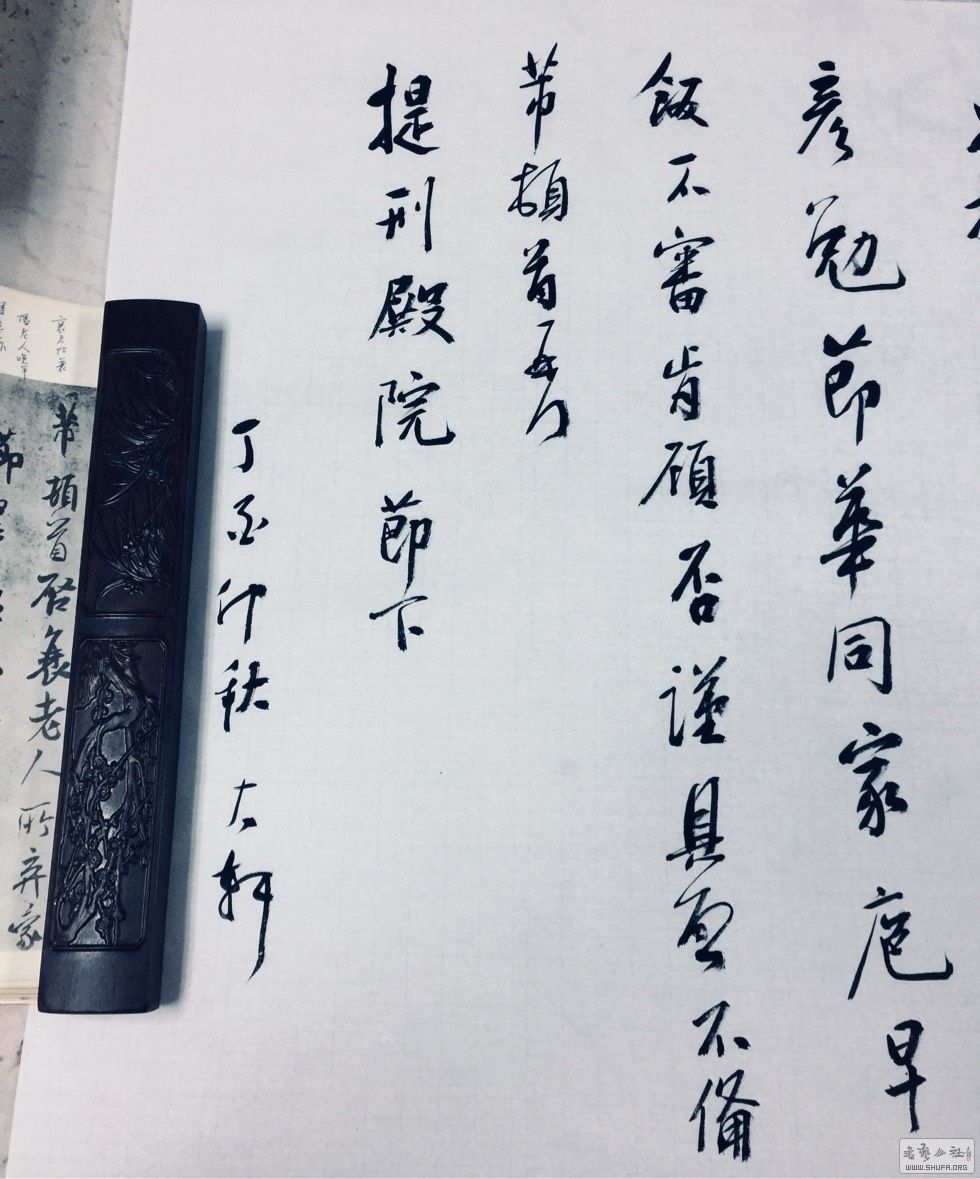 彥勉節華同家庖早
飯不審肯顧否謹具不備
芾頓首再拜
提刑殿院 節下
丁酉仲秋 大軒
芾頓首启襄老人
節所弃家
書藝公社
WWW.SHUFA.ORG